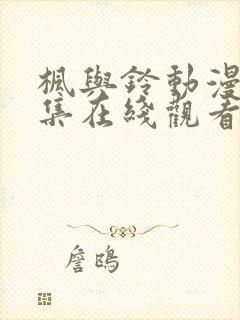 楓與鈴動漫
集在綫觀看
詹鴎